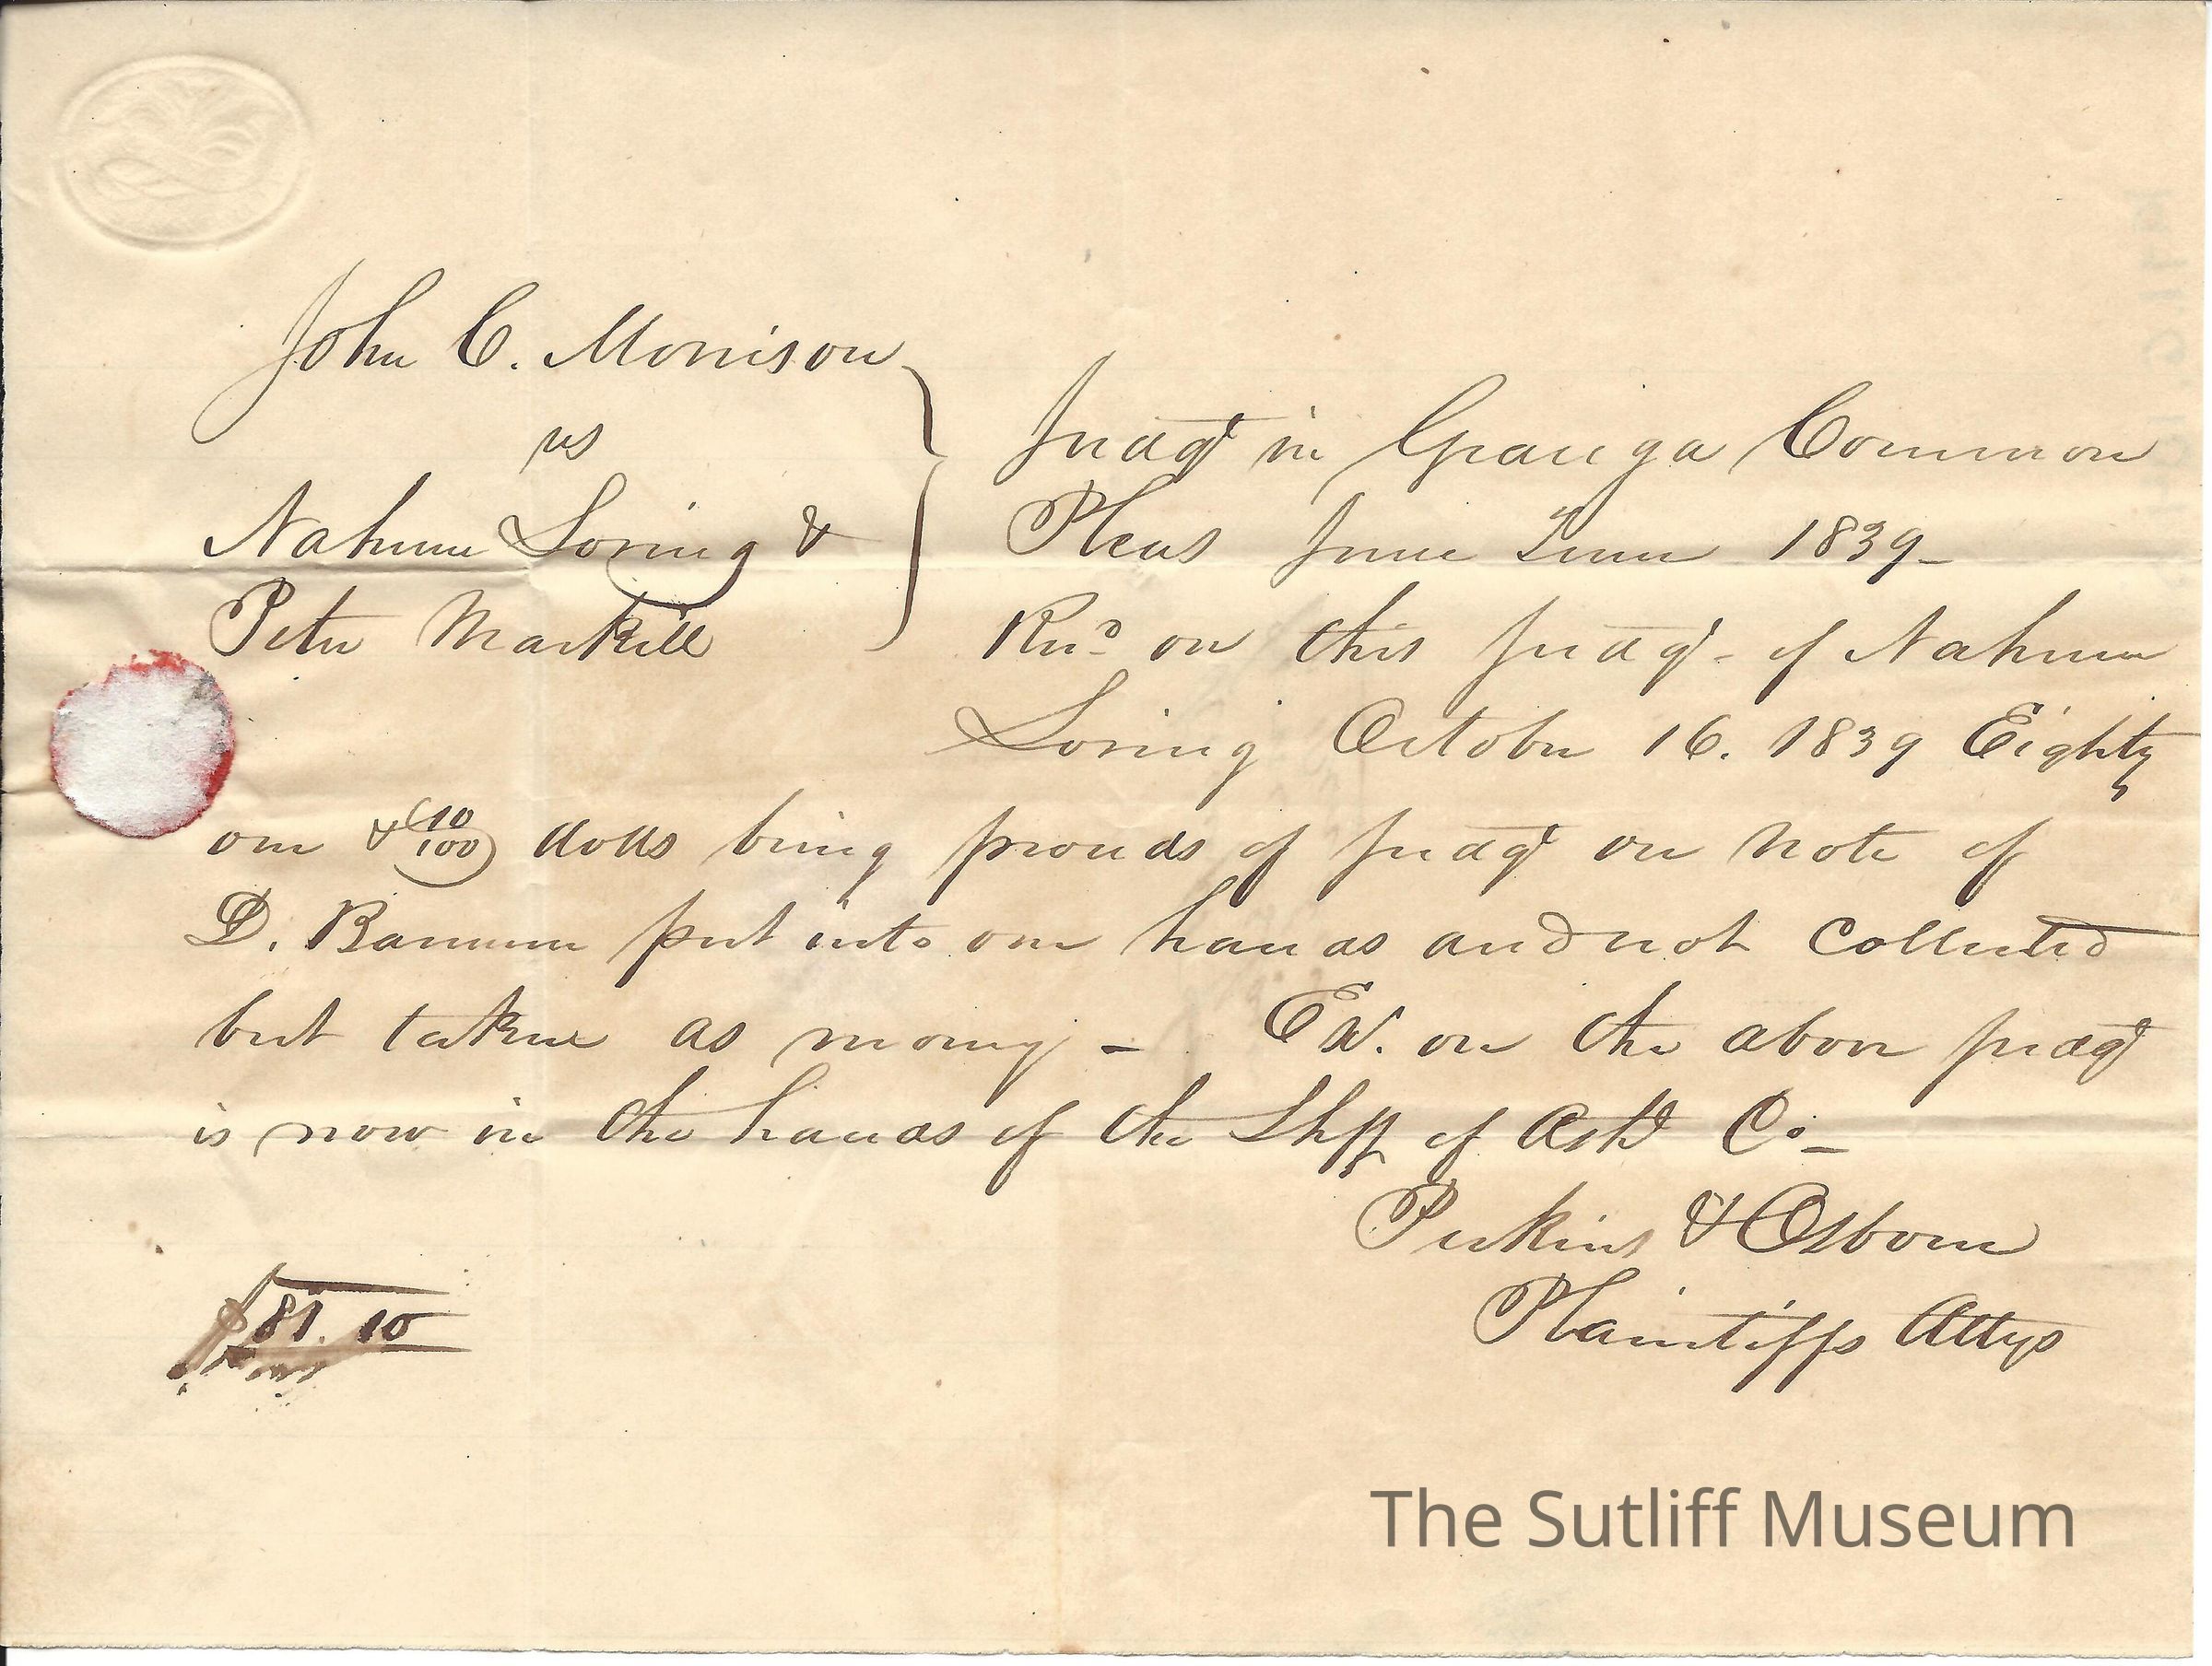 John C. Morrison
vs
Nahum Loring &
Peter Markell
Judgt in Geauga Common
Pleas June Term 1839–
Recd on this Judgt – of Nahum
Loring October 16. 1839 Eighty
one & 10/100 dolls being proceeds of Judgt on note of
D. Barnum put into our hands and not collected
but taken as money – Ex. on the above Judgt
is now in the hands of the Shff of Asht Co–
Perkins & Osborn
Plaintiffs Attys
$81.10
The Sutliff Museum